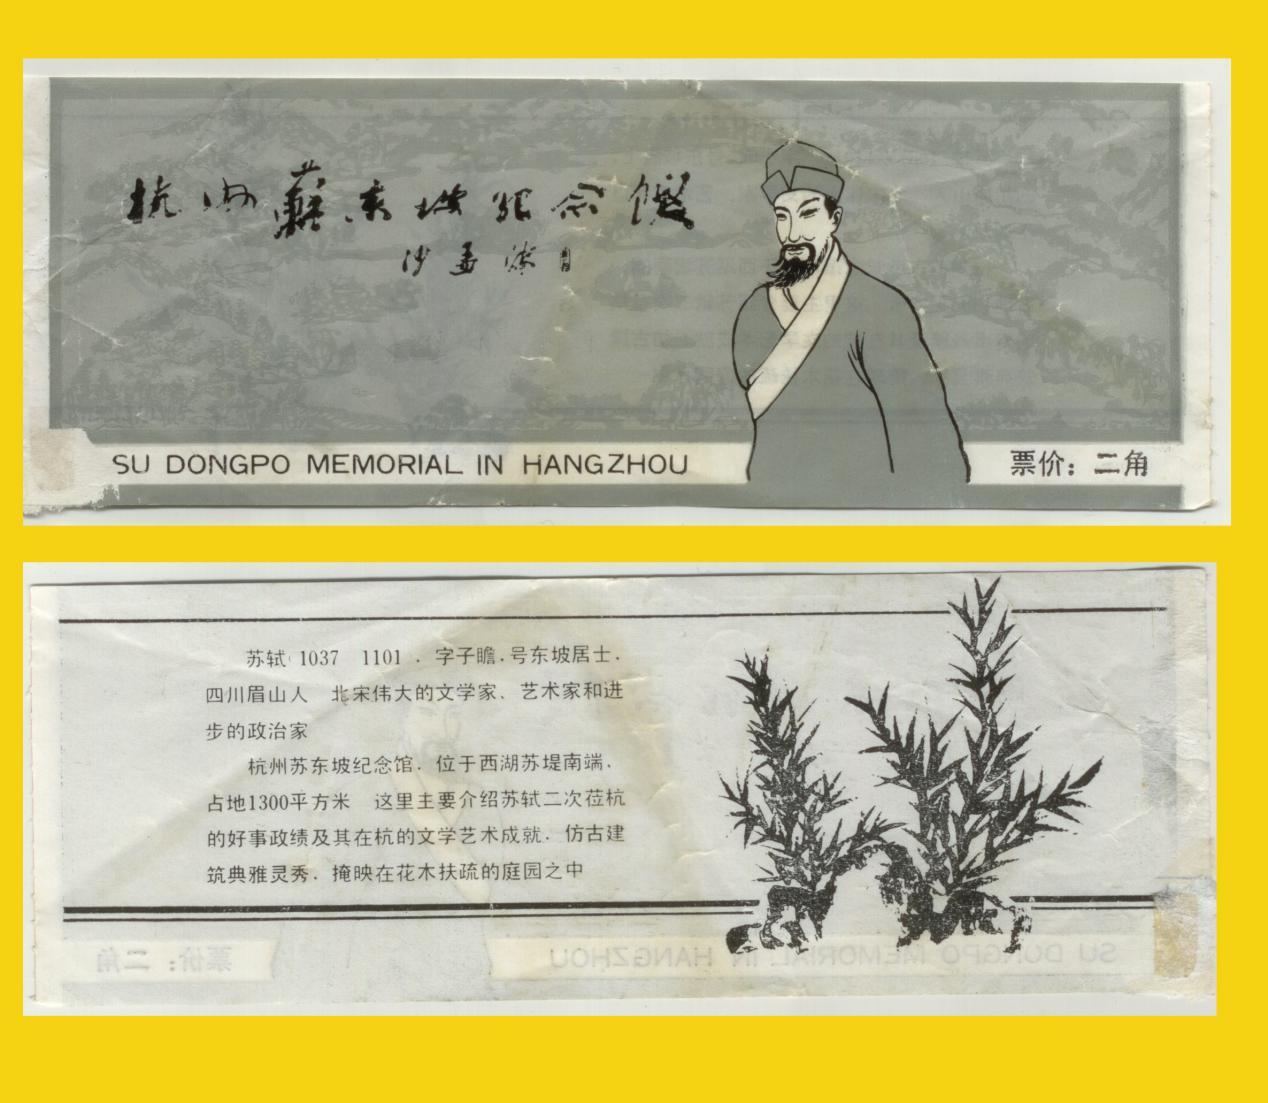 杭州蘇東坡紀念館
沙孟海
SU DONGPO MEMORIAL IN HANGZHOU
票价：二角
苏轼 1037 1101 . 字子瞻.号东坡居士.
四川眉山人 北宋伟大的文学家、艺术家和进
步的政治家
杭州苏东坡纪念馆. 位于西湖苏堤南端.
占地1300平方米 这里主要介绍苏轼二次莅杭
的好事政绩及其在杭的文学艺术成就. 仿古建
筑典雅灵秀. 掩映在花木扶疏的庭园之中